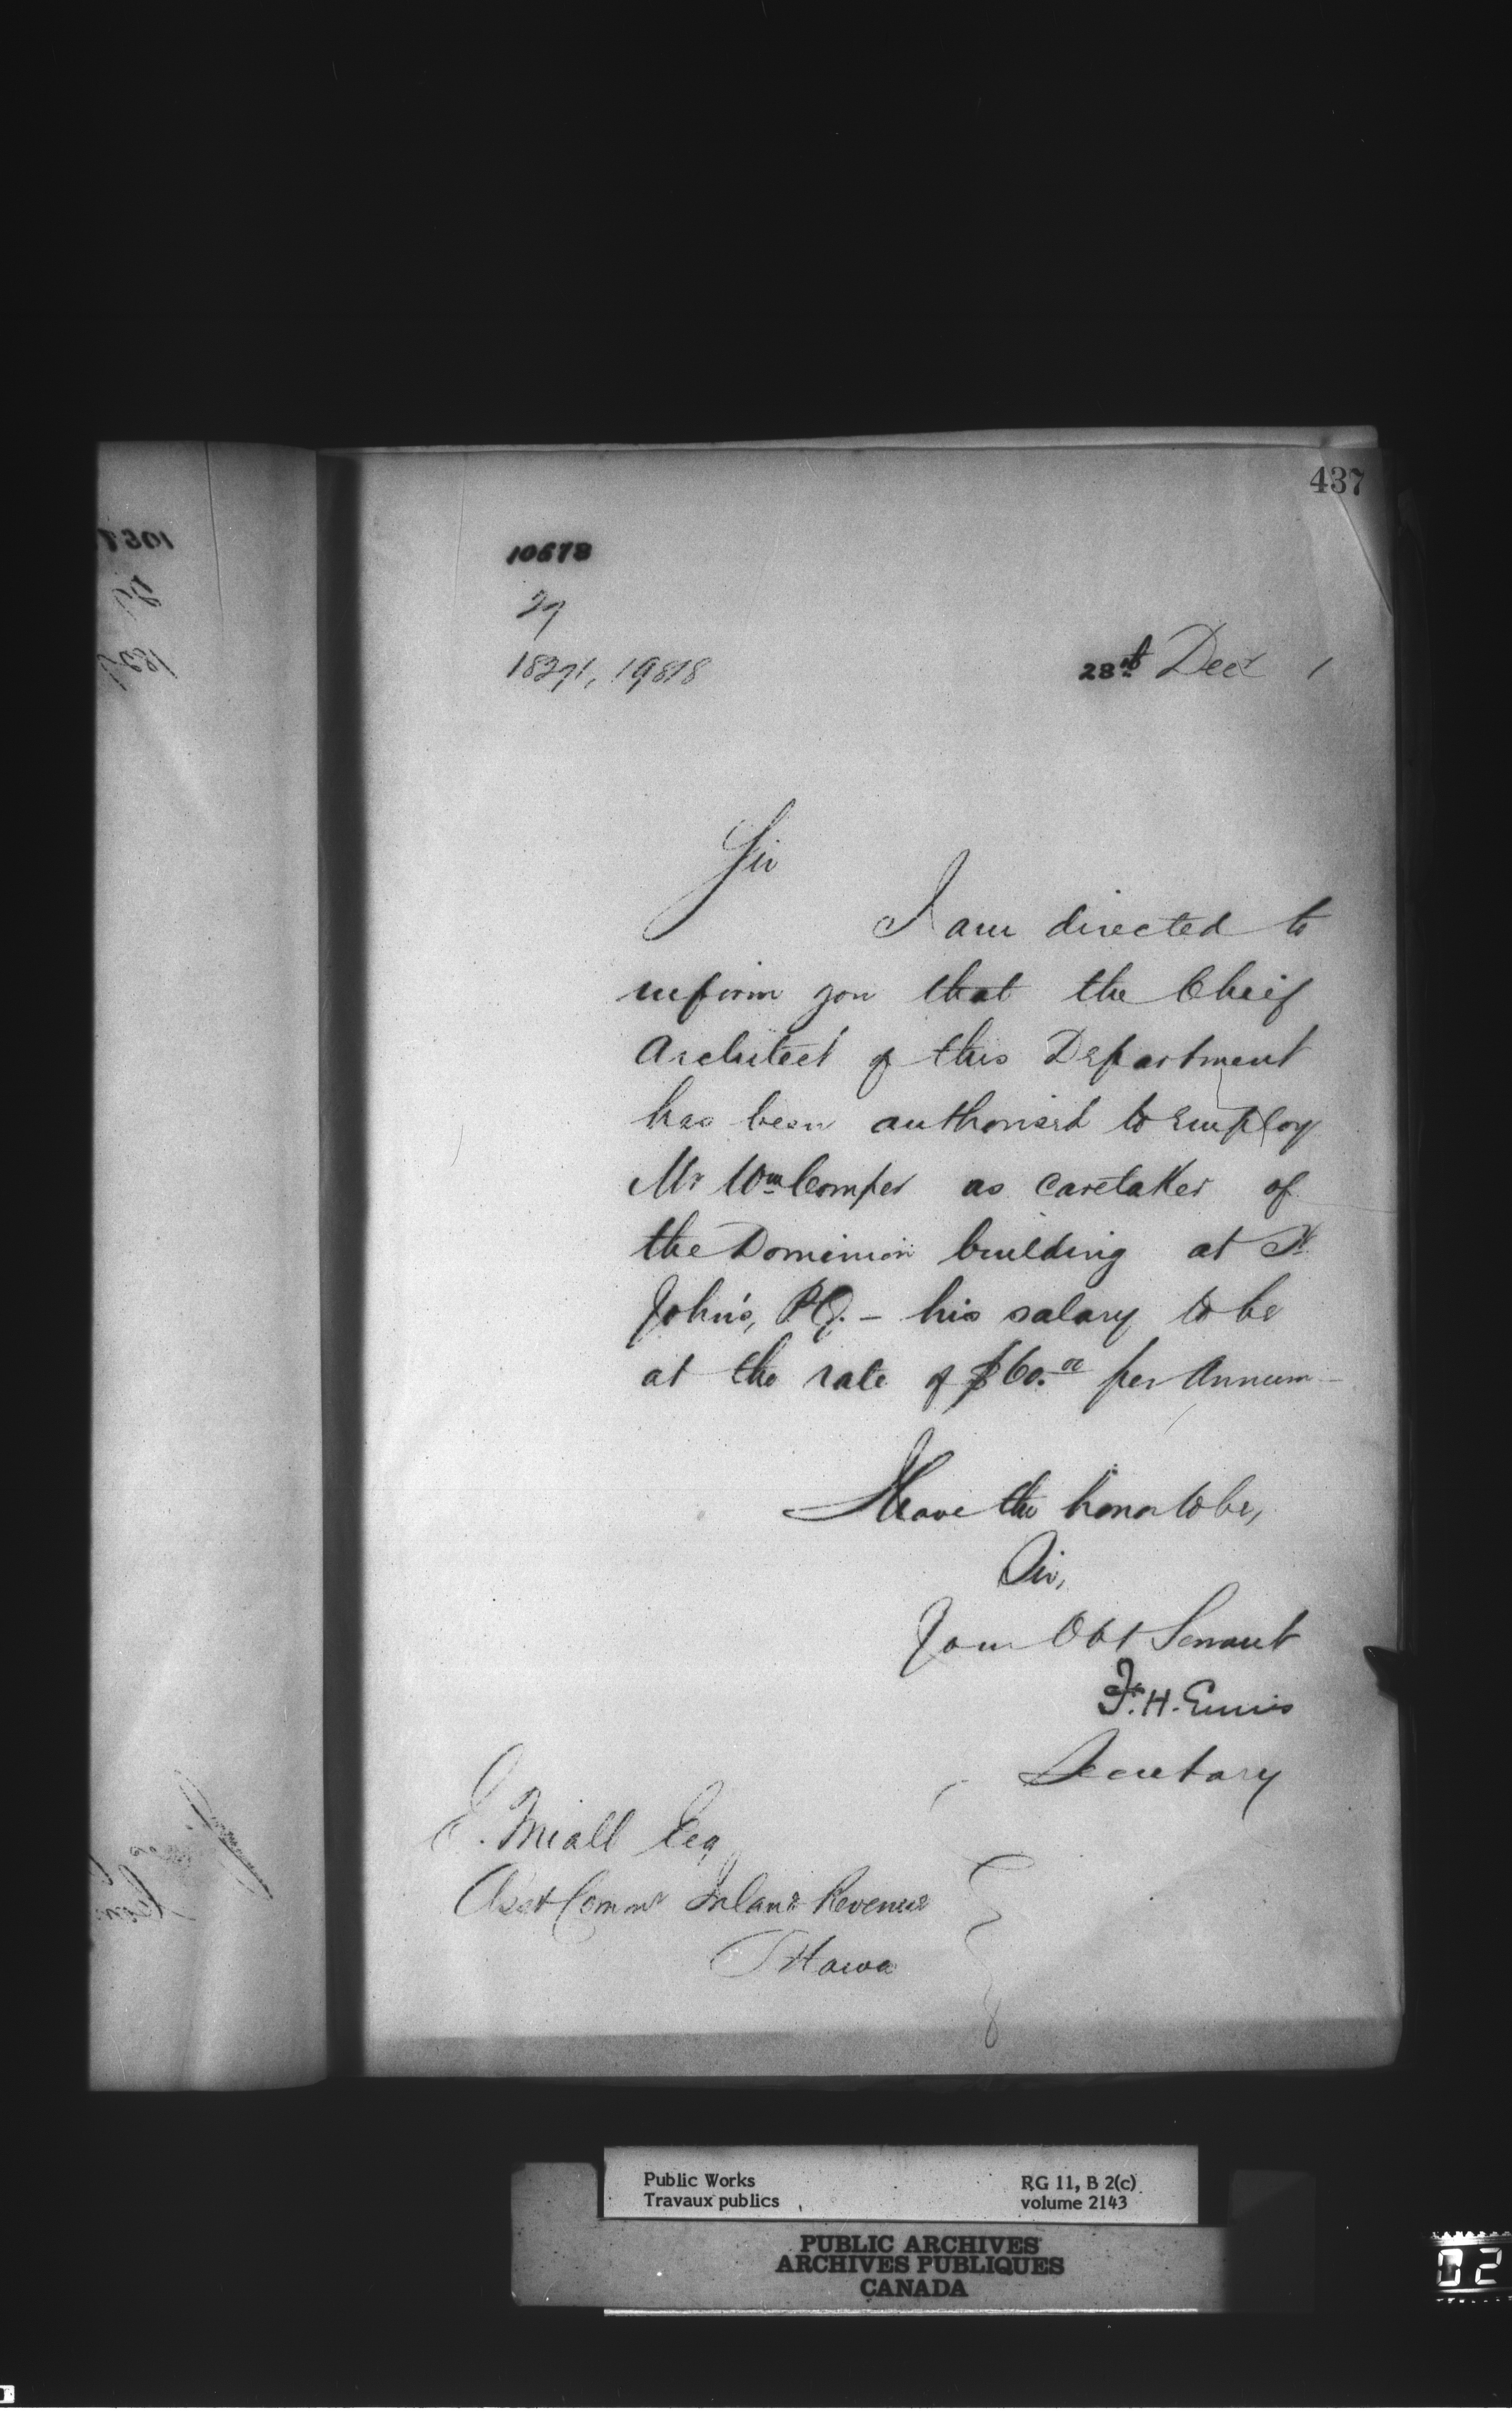 437
10678
27
18271, 19818
28th Decr 1
Sir
I am directed to
inform you that the Chief
Architect of this Department
has been authorised to employ
Mr Wm Comper as caretaker of
the Dominion building at St
John's, P.Q. – his salary to be
at the rate of $60.00 per Annum –
I Have the honor to be,
Sir,
Your Obt Servant
F. H. Ennis
Secretary
E. Miall Esq
Asst Commr Inland Revenue
Ottawa
Public Works
Travaux publics
RG 11, B 2(c)
volume 2143
PUBLIC ARCHIVES
ARCHIVES PUBLIQUES
CANADA
02